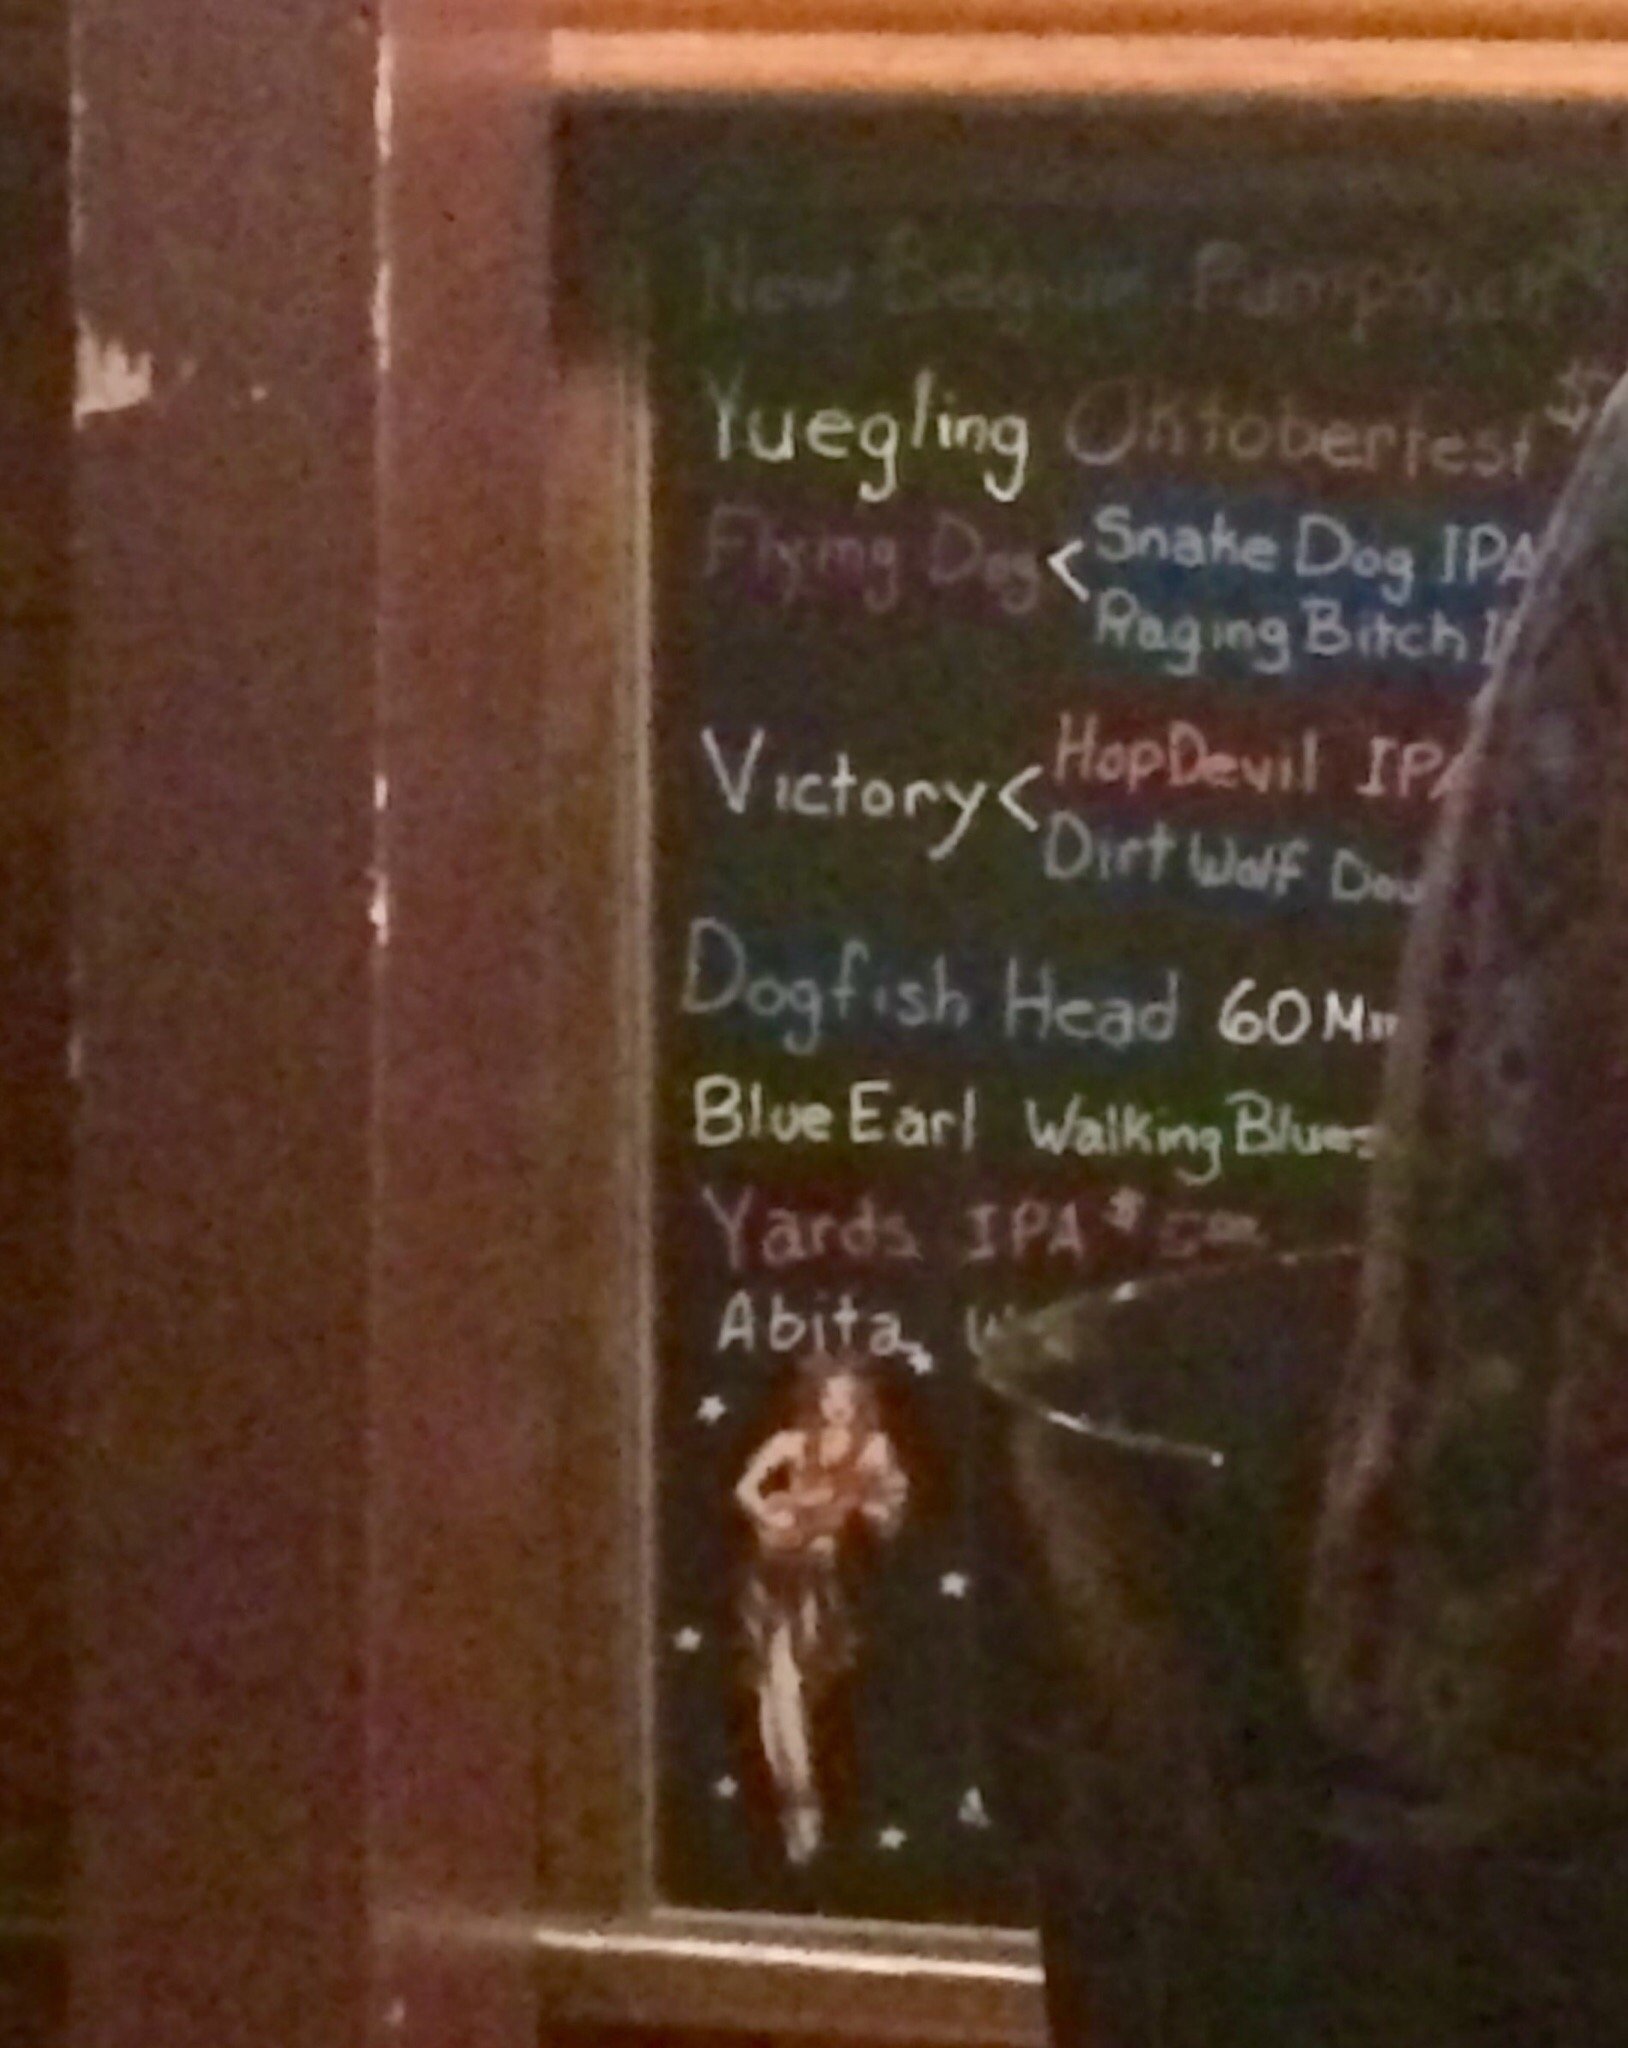 New Belgium Pumpkick
Yuegling Oktoberfest $
Flying Dog < Snake Dog IPA
Raging Bitch I
Victory < HopDevil IPA
Dirt Wolf Dou
Dogfish Head 60 Min
Blue Earl Walking Blues
Yards IPA $ 5.00
Abita W